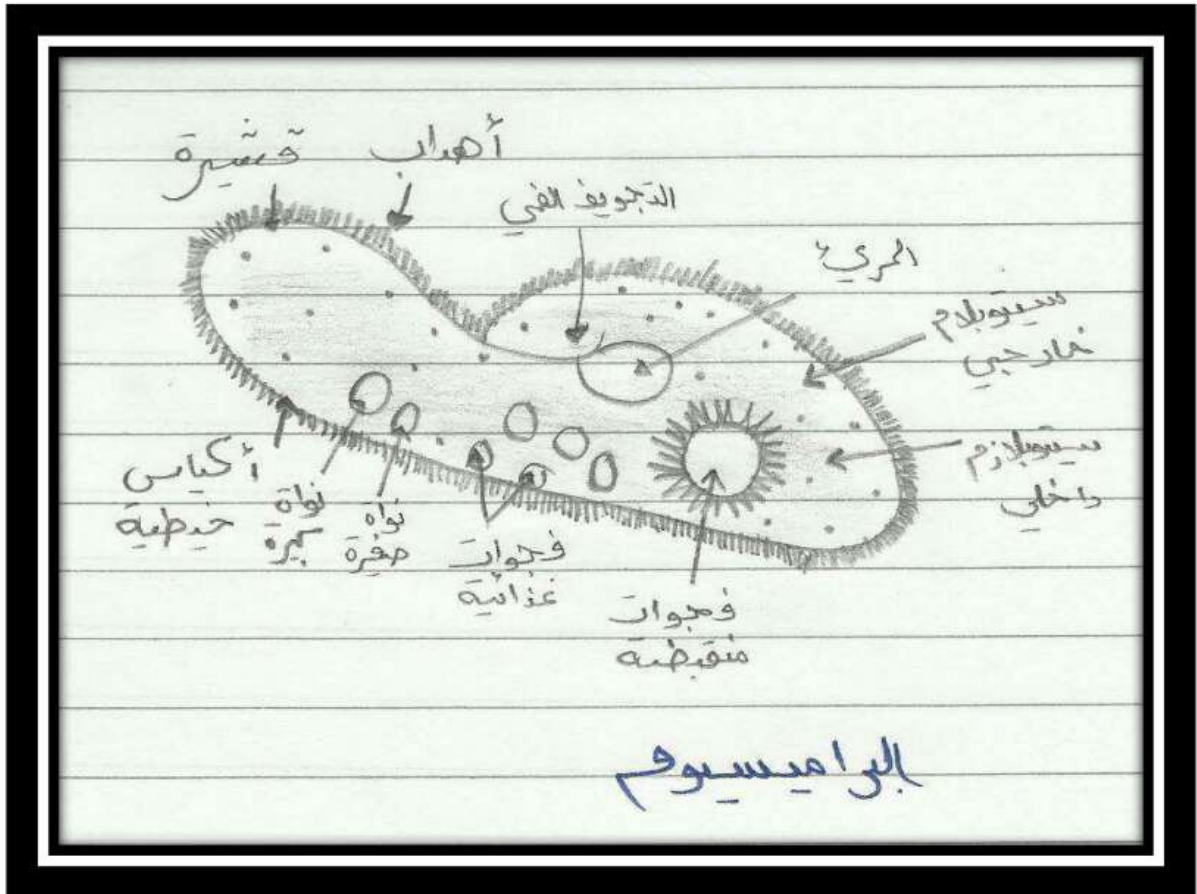 أهداب
قشيرة
التجويف الفمي
المريء
سيتوبلازم
خارجي
سيتوبلازم
داخلي
أكياس
خيطية
نواة
كبيرة
نواة
صغيرة
فجوات
غذائية
فجوات
منقبضة
البراميسيوم